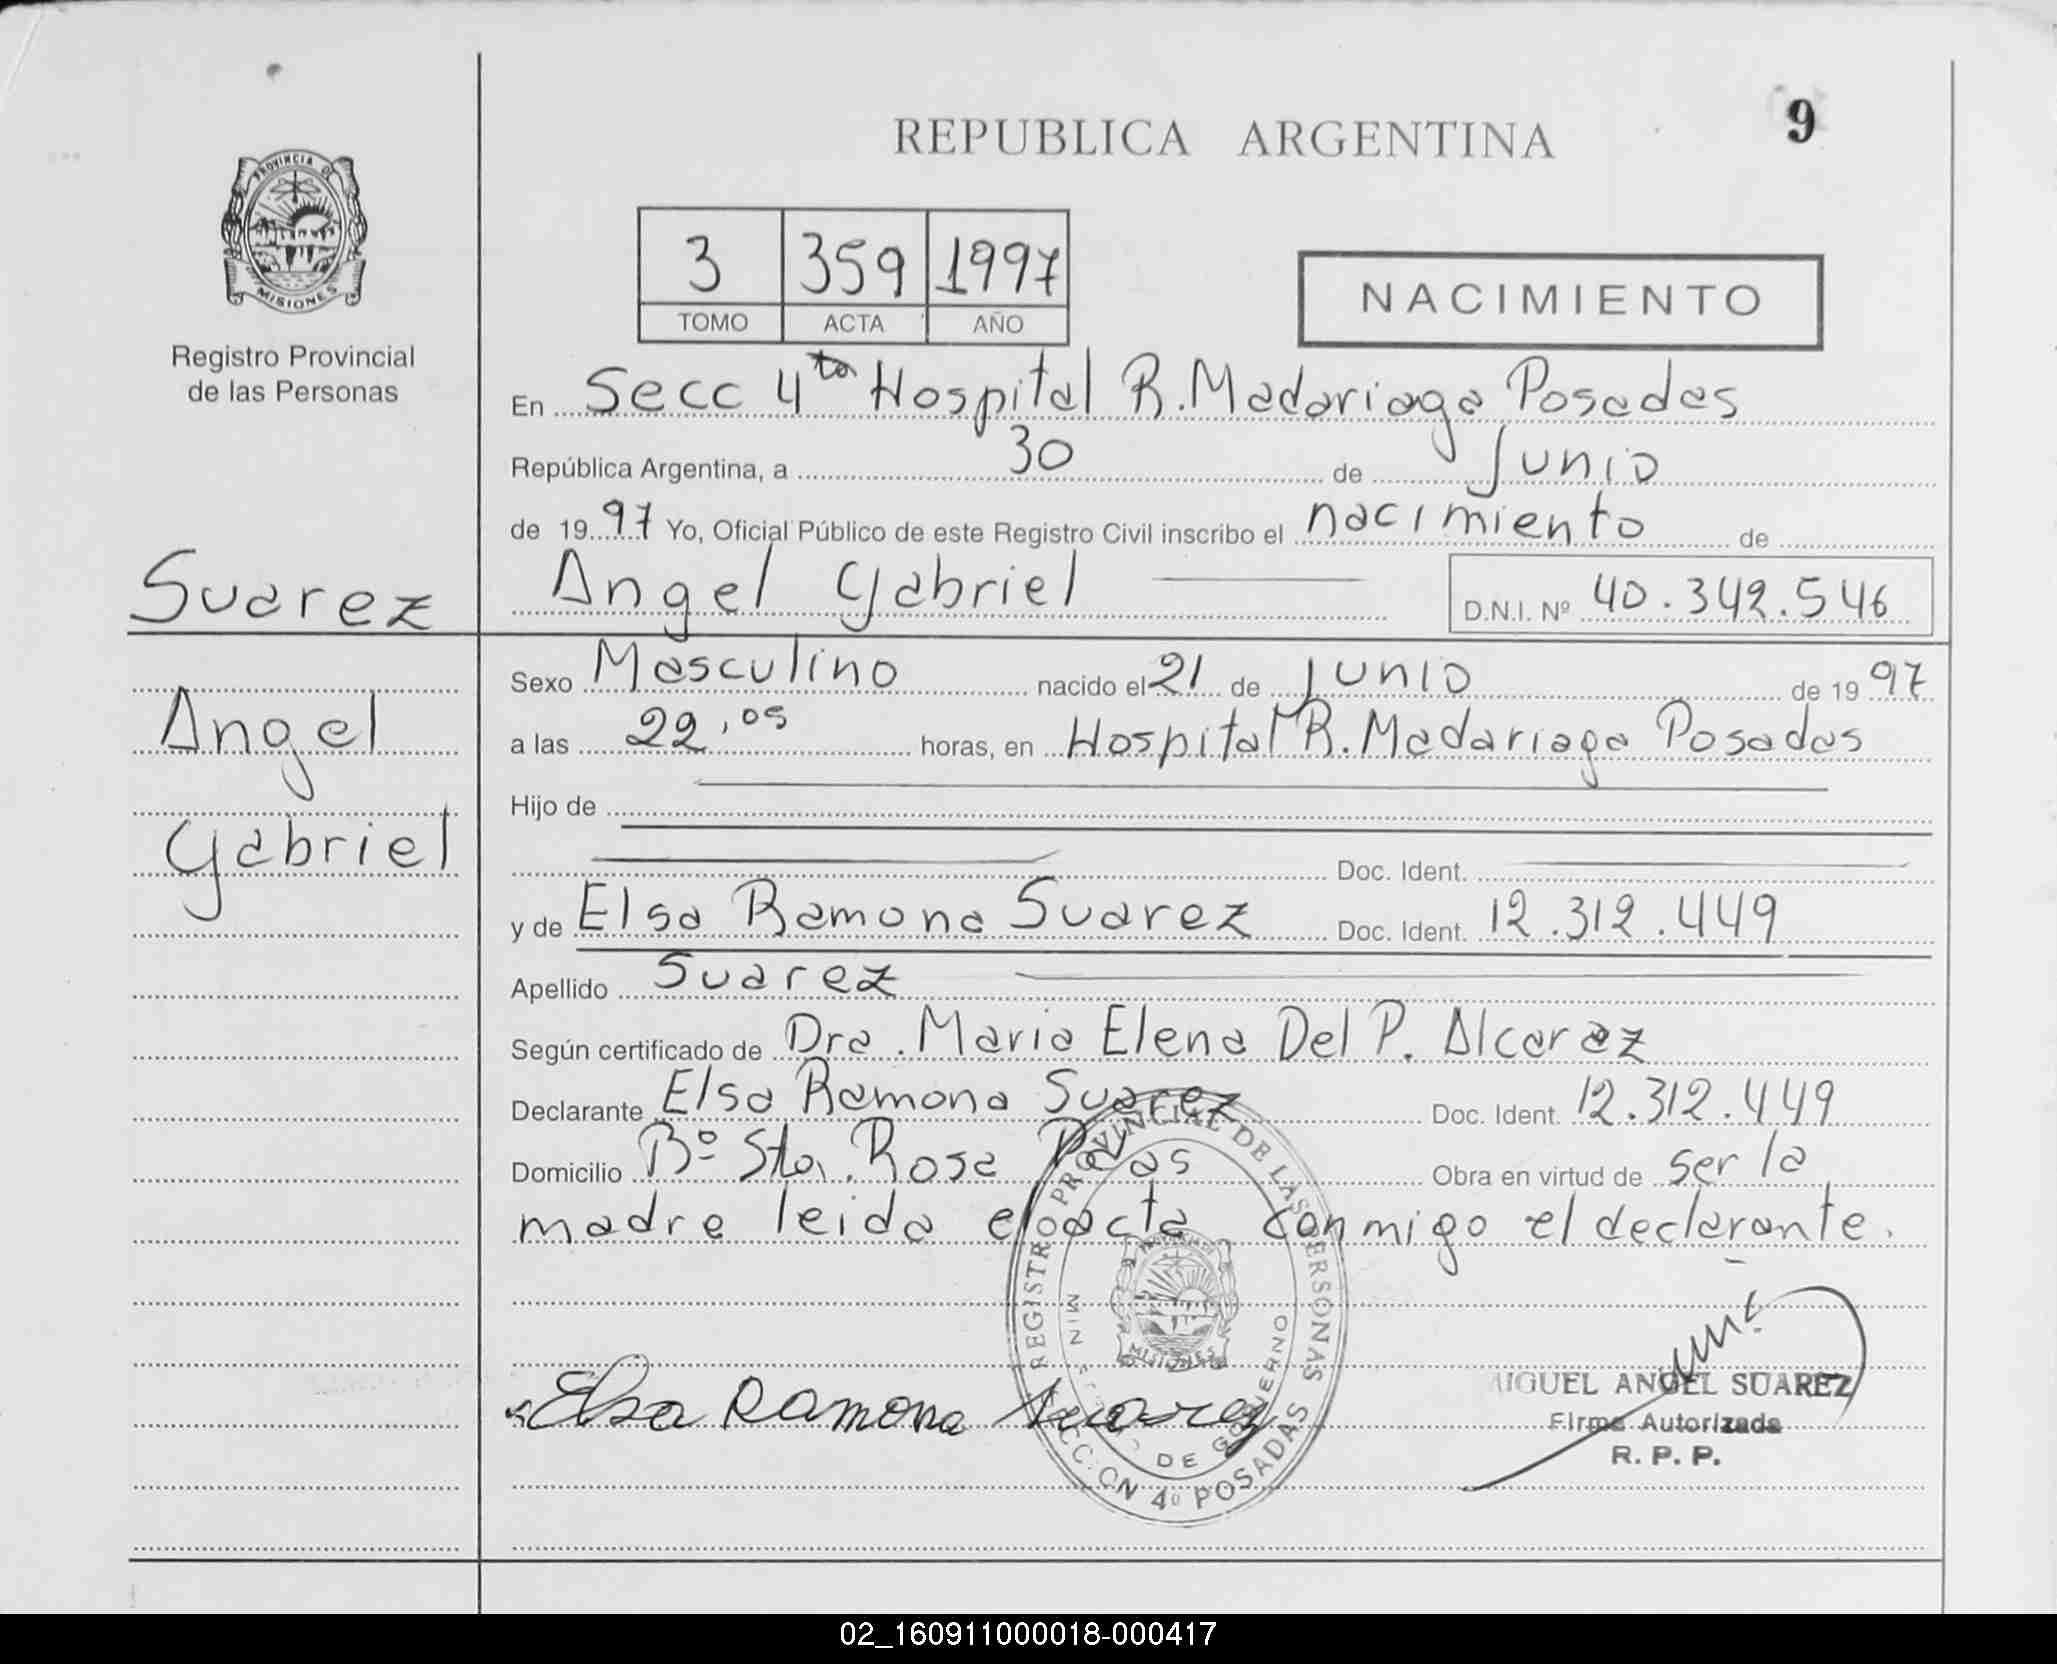 PROVINCIA DE
MISIONES
Registro Provincial
de las Personas
Suarez
Angel
Gabriel
REPUBLICA ARGENTINA
9
3 359 1997
TOMO ACTA AÑO
NACIMIENTO
En Secc 4ta Hospital R. Madariaga Posadas
República Argentina, a 30 de Junio
de 1997 Yo, Oficial Público de este Registro Civil inscribo el nacimiento de
Angel Gabriel D.N.I. Nº 40.342.546
Sexo Masculino nacido el 21 de Junio de 1997
a las 22,05 horas, en Hospital R. Madariaga Posadas
Hijo de
Doc. Ident.
y de Elsa Ramona Suarez Doc. Ident. 12.312.449
Apellido Suarez
Según certificado de Dra. Maria Elena Del P. Alcaraz
Declarante Elsa Ramona Suarez Doc. Ident. 12.312.449
Domicilio Bº Sta. Rosa Pdas Obra en virtud de ser la
madre leida el acta conmigo el declarante.
REGISTRO PROVINCIAL DE LAS PERSONAS
MISIONES
DE GOBIERNO
SECCION 4º POSADAS
Elsa Ramona Suarez
MIGUEL ANGEL SUAREZ
Firma Autorizada
R. P. P.
02_160911000018-000417